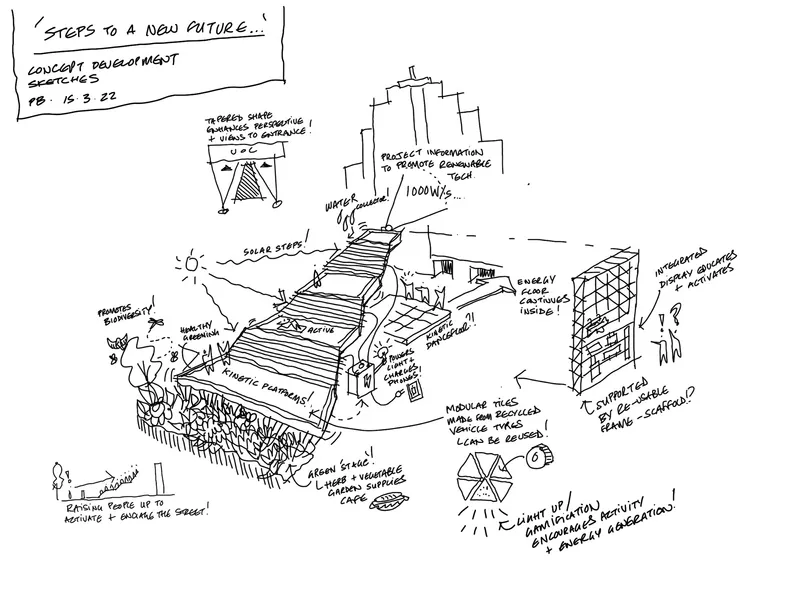 'STEPS TO A NEW FUTURE...'
CONCEPT DEVELOPMENT
SKETCHES
PB. 15.3.22
TAPERED SHAPE
ENHANCES PERSPECTIVE
+ VIEWS TO ENTRANCE!
UOC
PROJECT INFORMATION
TO PROMOTE RENEWABLE
TECH.
1000W/s...
WATER
COLLECTOR!
SOLAR STEPS!
PROMOTES
BIODIVERSITY!
HEALTHY
GREENING
ACTIVE
KINETIC PLATFORMS!
KINETIC
DANCEFLOOR?!
POWERS
LIGHT +
CHARGES
PHONES!
ENERGY
FLOOR
CONTINUES
INSIDE!
INTEGRATED
DISPLAY EDUCATES
+ ACTIVATES
! ?
SUPPORTED
BY RE-USABLE
FRAME - SCAFFOLD!?
MODULAR TILES
MADE FROM RECYCLED
VEHICLE TYRES
CAN BE REUSED!
GREEN 'STAGE'!
HERB + VEGETABLE
GARDEN SUPPLIES
CAFE
RAISING PEOPLE UP TO
ACTIVATE + ENGAGE THE STREET!
LIGHT UP/
GAMIFICATION
ENCOURAGES ACTIVITY
+ ENERGY GENERATION!